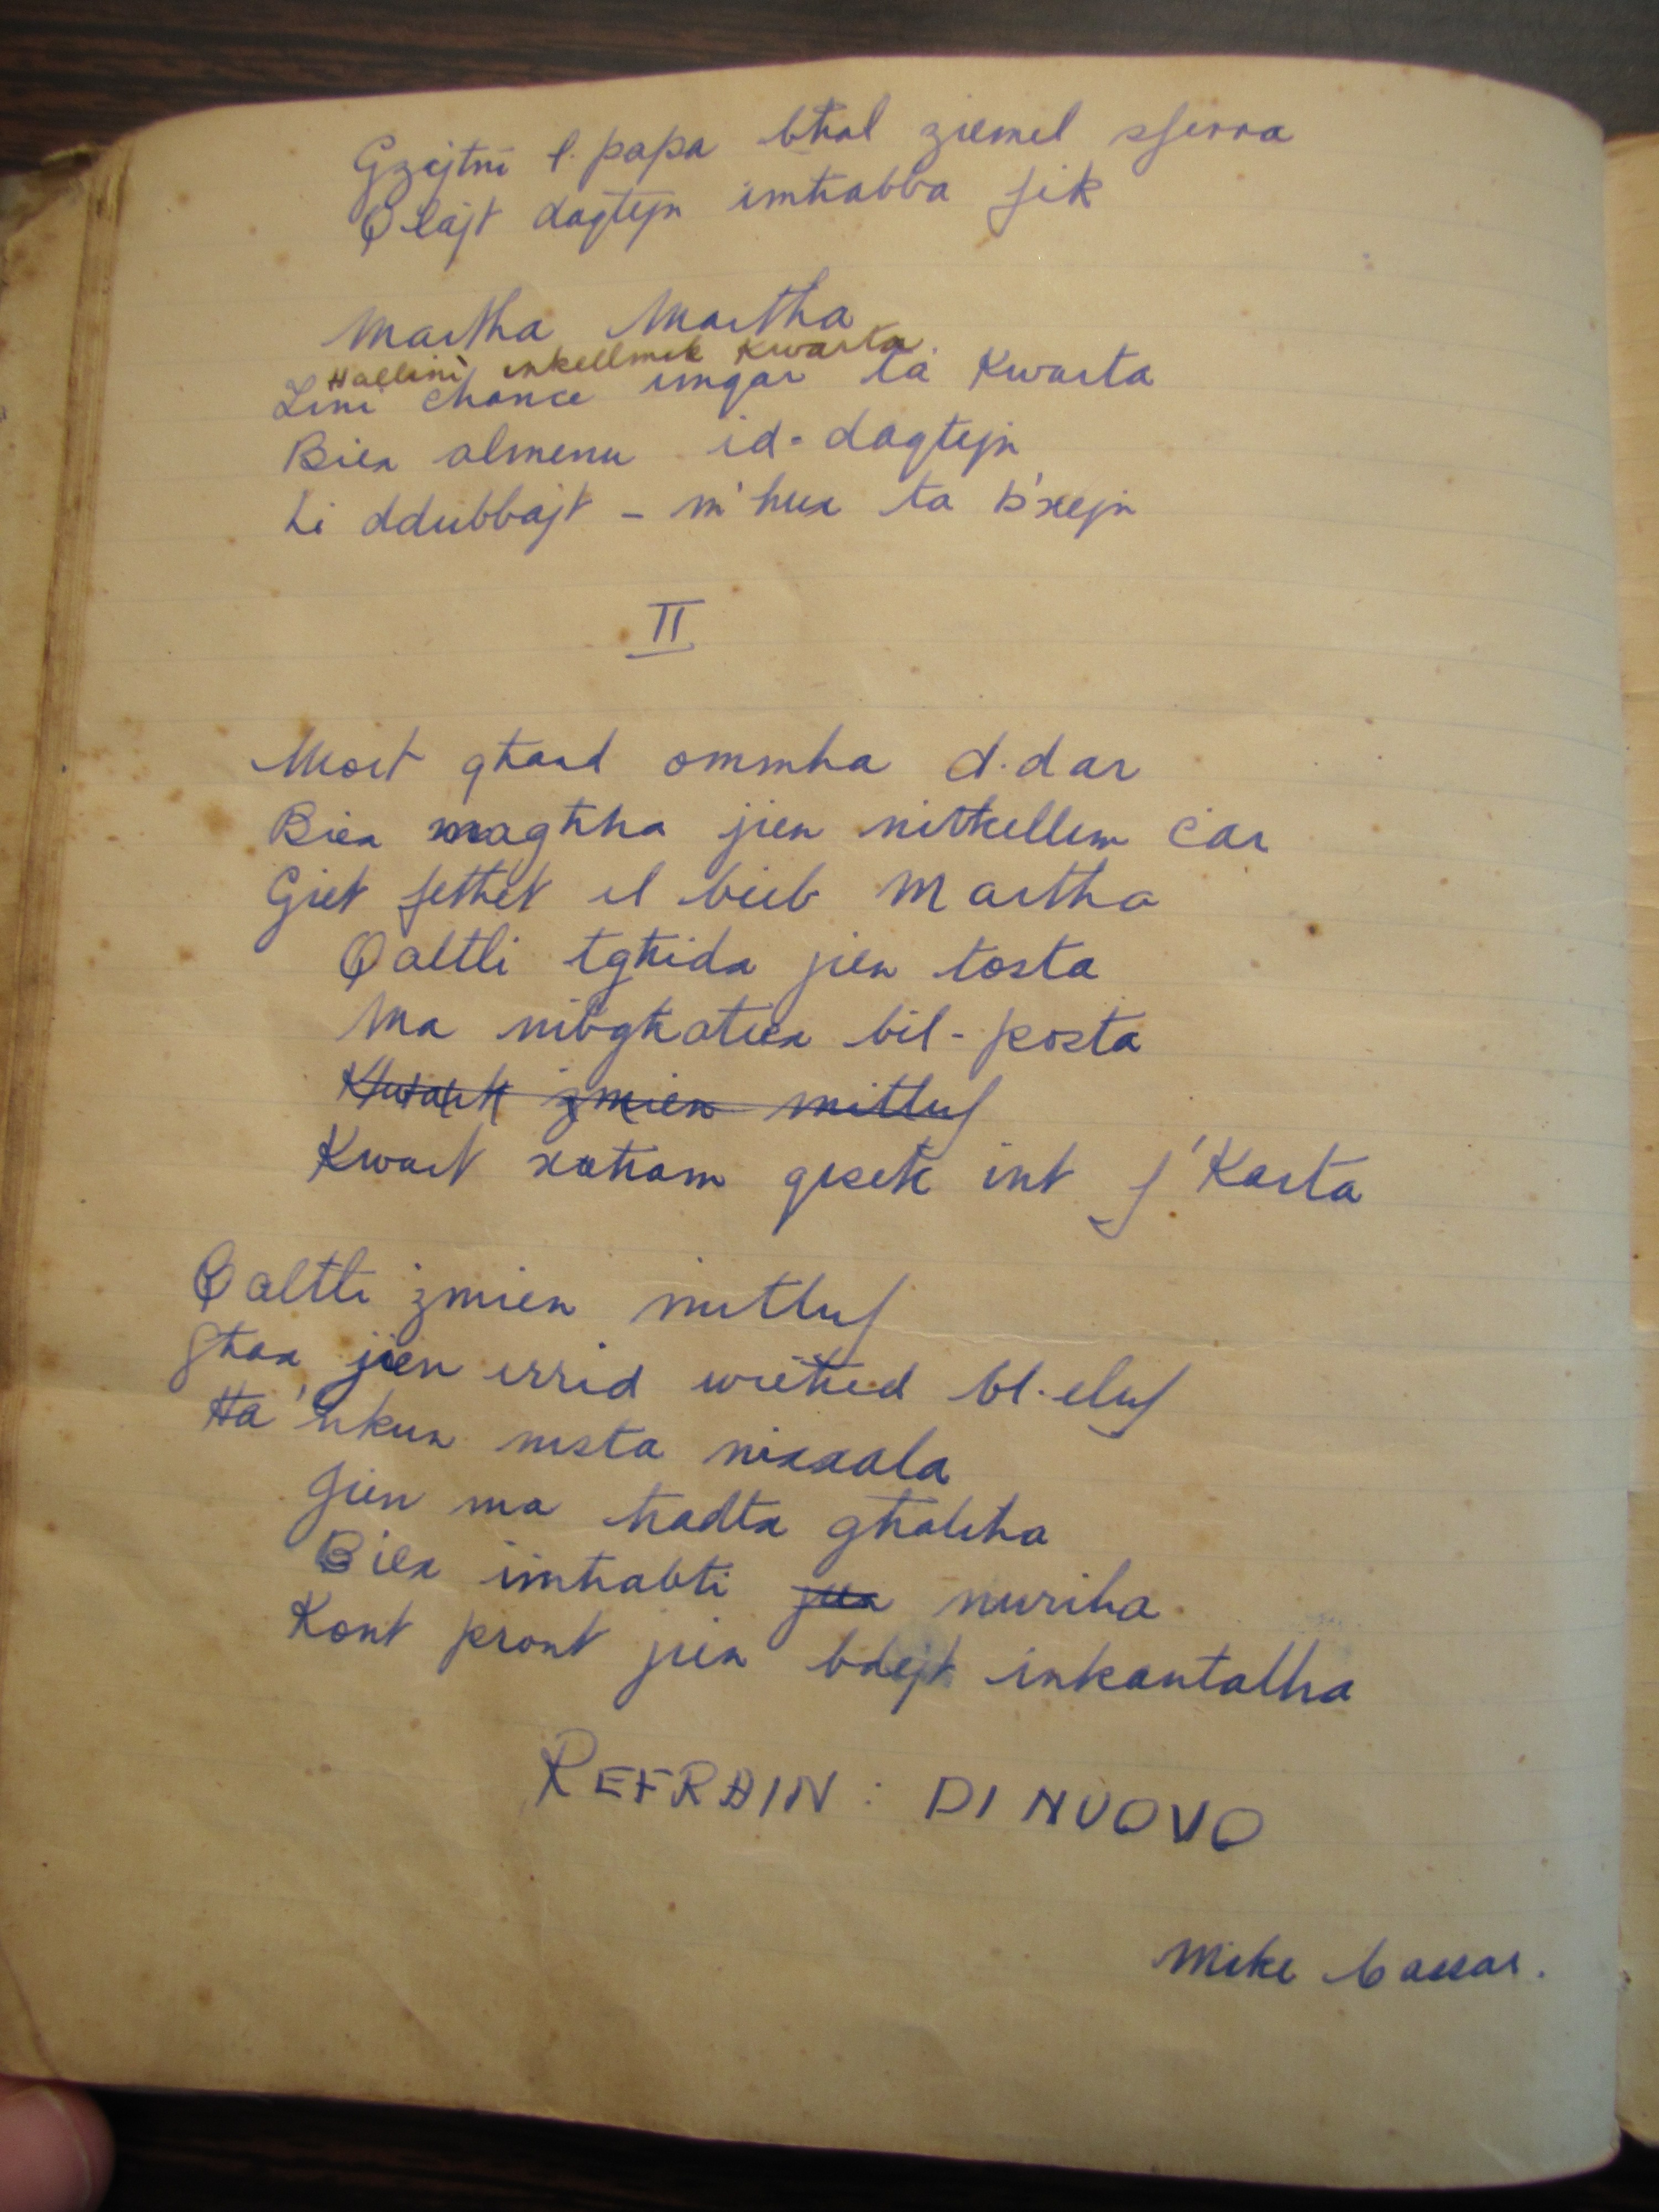 Gzejtni l. papa bħal ziemel sferra
Qlajt daqtejn imħabba fik
Martha Martha
Ħallini inkellmek kwarta.
Zini chance imqar ta kwarta
Biex almenu id-daqtejn
Li ddubbajt - m'hux ta b'xejn
II
Mort għand ommha d.dar
Biex magħha jien nitkellem ċar
Ġiet fetħet il bieb Martha
Qaltli tgħida jien tosta
Ma nibgħatiex bil-posta
żmien mitluf
Kwart xaħam qisek int f'Karta
Qaltli żmien mitluf
Għax jien irrid wieħed bl.eluf
Ħa 'nkun nista nixxala
Jien ma ħadta għaliha
Biex imħabti jien nuriha
Kont pront jien bdejt inkantalha
REFRAIN: DI NUOVO
Mike Cassar.